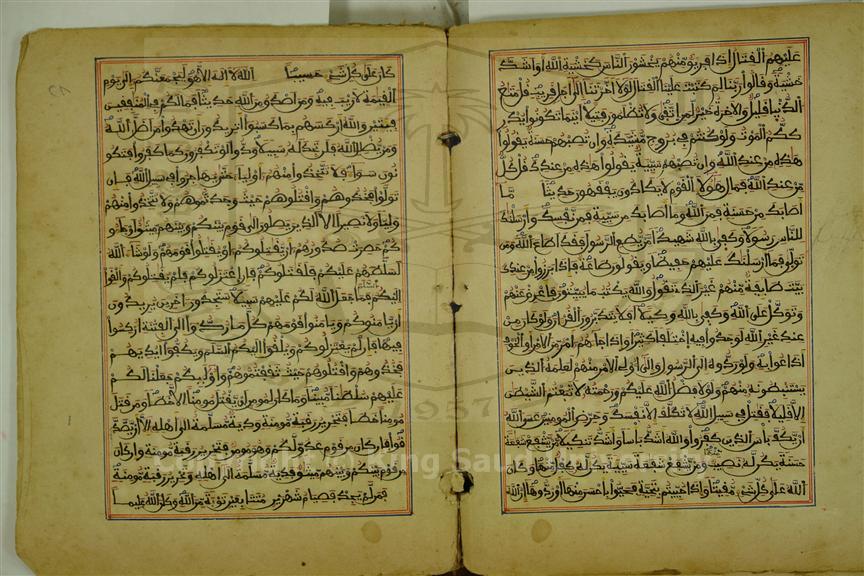 عليهم القتال اذا فريق منهم يخشون الناس كخشية الله او اشد
خشية وقالوا ربنا لم كتبت علينا القتال لولا اخرتنا الى اجل قريب قل متاع
الدنيا قليل والاخرة خير لمن اتقى ولا تظلمون فتيلا اينما تكونوا يدر
ككم الموت ولو كنتم في بروج مشيدة وان تصبهم حسنة يقولوا
هذه من عند الله وان تصبهم سيئة يقولوا هذه من عندك قل كل
من عند الله فمال هؤلاء القوم لا يكادون يفقهون حديثا ما
اصابك من حسنة فمن الله وما اصابك من سيئة فمن نفسك وارسلنك
للناس رسولا وكفى بالله شهيدا من يطع الرسول فقد اطاع الله ومن
تولى فما ارسلنك عليهم حفيظا ويقولون طاعة فاذا برزوا من عندك
بيت طائفة منهم غير الذي تقول والله يكتب ما يبيتون فاعرض عنهم
وتوكل على الله وكفى بالله وكيلا افلا يتدبرون القرءان ولو كان من
عند غير الله لوجدوا فيه اختلفا كثيرا واذا جاءهم امر من الامن او الخوف
اذاعوا به ولو ردوه الى الرسول والى اولي الامر منهم لعلمه الذين
يستنبطونه منهم ولولا فضل الله عليكم ورحمته لاتبعتم الشيطن
الا قليلا فقتل في سبيل الله لا تكلف الا نفسك وحرض المومنين عسى الله
ان يكف باس الذين كفروا والله اشد باسا واشد تنكيلا من يشفع شفعة
حسنة يكن له نصيب منها ومن يشفع شفعة سيئة يكن له كفل منها وكان
الله على كل شيء مقيتا واذا حييتم بتحية فحيوا باحسن منها او ردوها ان الله
كان على كل شيء حسيبا الله لا اله الا هو ليجمعنكم الى يوم
القيمة لا ريب فيه ومن اصدق من الله حديثا فما لكم في المنفقين
فئتين والله اركسهم بما كسبوا اتريدون ان تهدوا من اضل الله
ومن يضلل الله فلن تجد له سبيلا ودوا لو تكفرون كما كفروا فتكو
نون سواء فلا تتخذوا منهم اولياء حتى يهاجروا في سبيل الله فان
تولوا فخذوهم واقتلوهم حيث وجدتموهم ولا تتخذوا منهم
وليا ولا نصيرا الا الذين يصلون الى قوم بينكم وبينهم ميثق او جاءو
كم حصرت صدورهم ان يقتلوكم او يقتلوا قومهم ولو شاء الله
لسلطهم عليكم فلقتلوكم فان اعتزلوكم فلم يقتلوكم والقوا
اليكم السلم فما جعل الله لكم عليهم سبيلا ستجدون اخرين يريدون
ان يامنوكم ويامنوا قومهم كل ما ردوا الى الفتنة اركسوا
فيها فان لم يعتزلوكم ويلقوا اليكم السلم ويكفوا ايديهم
فخذوهم واقتلوهم حيث ثقفتموهم واولئكم جعلنا لكم
عليهم سلطنا مبينا وما كان لمومن ان يقتل مومنا الا خطئا ومن قتل
مومنا خطئا فتحرير رقبة مومنة ودية مسلمة الى اهله الا ان يصد
قوا فان كان من قوم عدو لكم وهو مومن فتحرير رقبة مومنة وان كان
من قوم بينكم وبينهم ميثق فدية مسلمة الى اهله وتحرير رقبة مومنة
فمن لم يجد فصيام شهرين متتابعين توبة من الله وكان الله عليما
1957